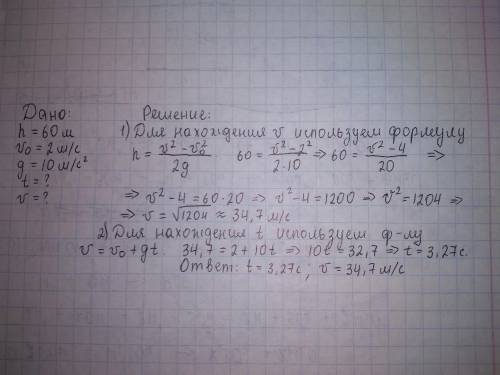 Дано:
h = 60 м
v₀ = 2 м/с
g = 10 м/с²
t = ?
v = ?
Решение:
1) Для нахождения v используем формулу
h = (v² - v₀²)/2g    60 = (v² - 2²)/(2·10) ⇒ 60 = (v² - 4)/20 ⇒
⇒ v² - 4 = 60·20 ⇒ v² - 4 = 1200 ⇒ v² = 1204 ⇒
⇒ v = √1204 ≈ 34,7 м/с
2) Для нахождения t используем ф-лу
v = v₀ + gt    34,7 = 2 + 10t ⇒ 10t = 32,7 ⇒ t = 3,27с.
Ответ: t = 3,27с ; v = 34,7 м/с